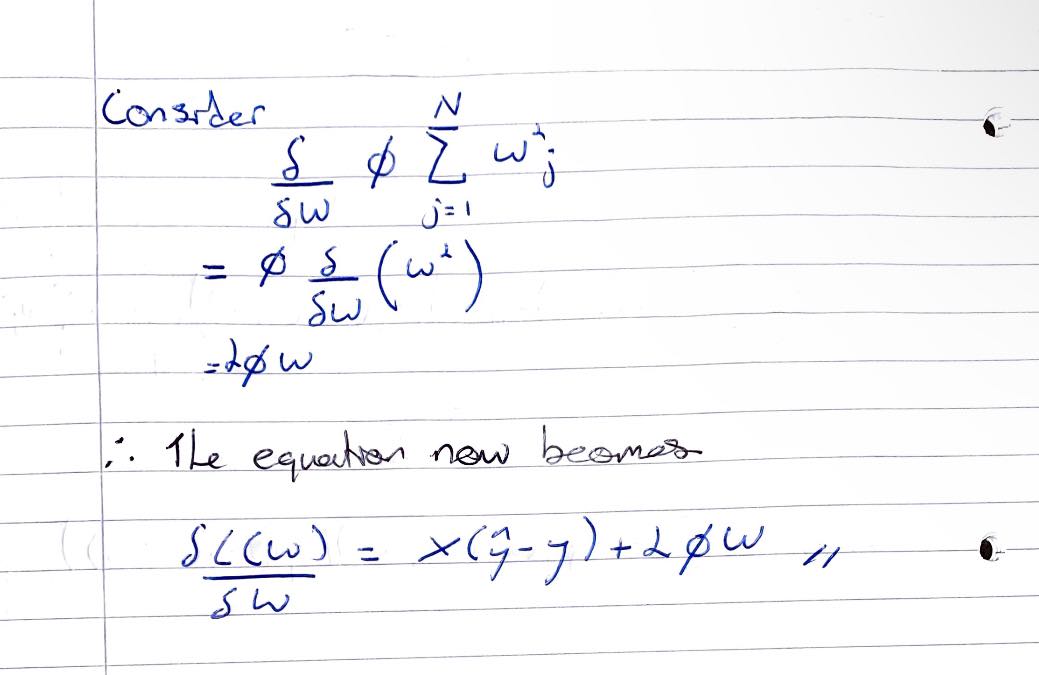 Consider
δ/δw ϕ ∑_{j=1}^{N} w²_j
= ϕ δ/δw (w²)
= 2ϕw
∴ The equation now becomes
δL(w)/δw = x(ŷ-y) + 2ϕw //